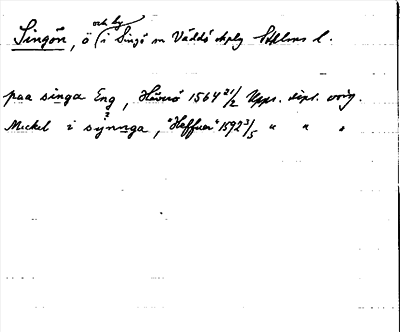 Singön, ö och by (i Singö sn Väddö skplg Sthlms l.
paa singa Eng, Häverö 1564 21/2 Upps. dipl. orig.
Mickel i synnga, "Haffuer" 1592 3/5 " " "